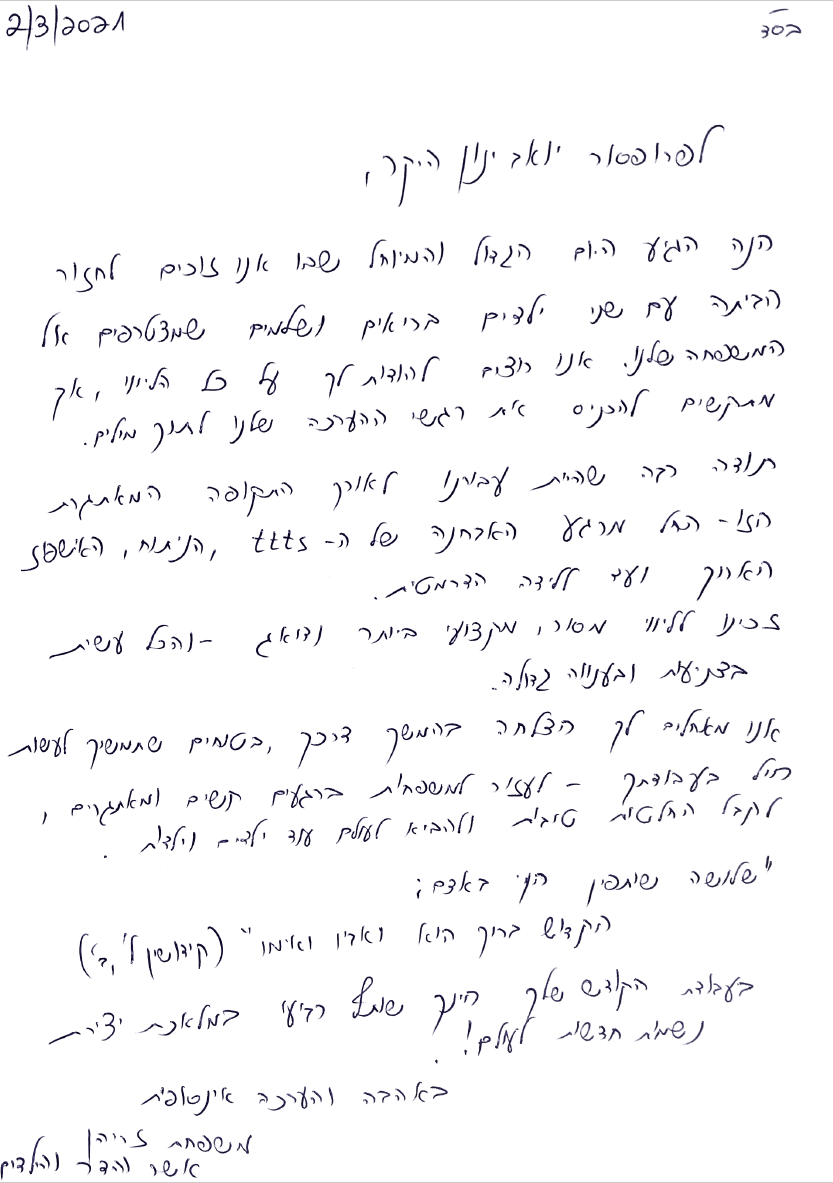 בסד
2/3/2021
לפרופסור יואב ינון היקר,
הנה הגיע היום הגדול והמיוחל שבו אנו זוכים לחזור
הביתה עם שני ילדים בריאים ושלמים שמצטרפים אל
המשפחה שלנו. אנו רוצים להודות לך על כל הליווי, אך
מתקשים להכניס את רגשי ההערכה שלנו לתוך מילים.
תודה רבה שהיית עבורנו לאורך התקופה המאתגרת
הזו - החל מרגע האבחנה של ה- ttts, הניתוח, האישפוז
הארוך ועד ללידה הדרמטית.
זכינו לליווי מסור, מקצועי ביותר ודואג - והכל עשית
בצניעות ובענווה גדולה.
אנו מאחלים לך הצלחה בהמשך דרכך, בטוחים שתמשיך לעשות
חיל בעבודתך - לעזור למשפחות ברגעים קשים ומאתגרים,
לקבל החלטות טובות ולהביא לעולם עוד ילדים וילדות.
"שלושה שותפין הן באדם;
הקדוש ברוך הוא ואביו ואימו" (קידושין ל', ב')
בעבודת הקודש שלך הינך שותף רביעי במלאכת יצירת
נשמות חדשות לעולם!
באהבה והערכה אינסופית
משפחת
אשר והדר והילדים